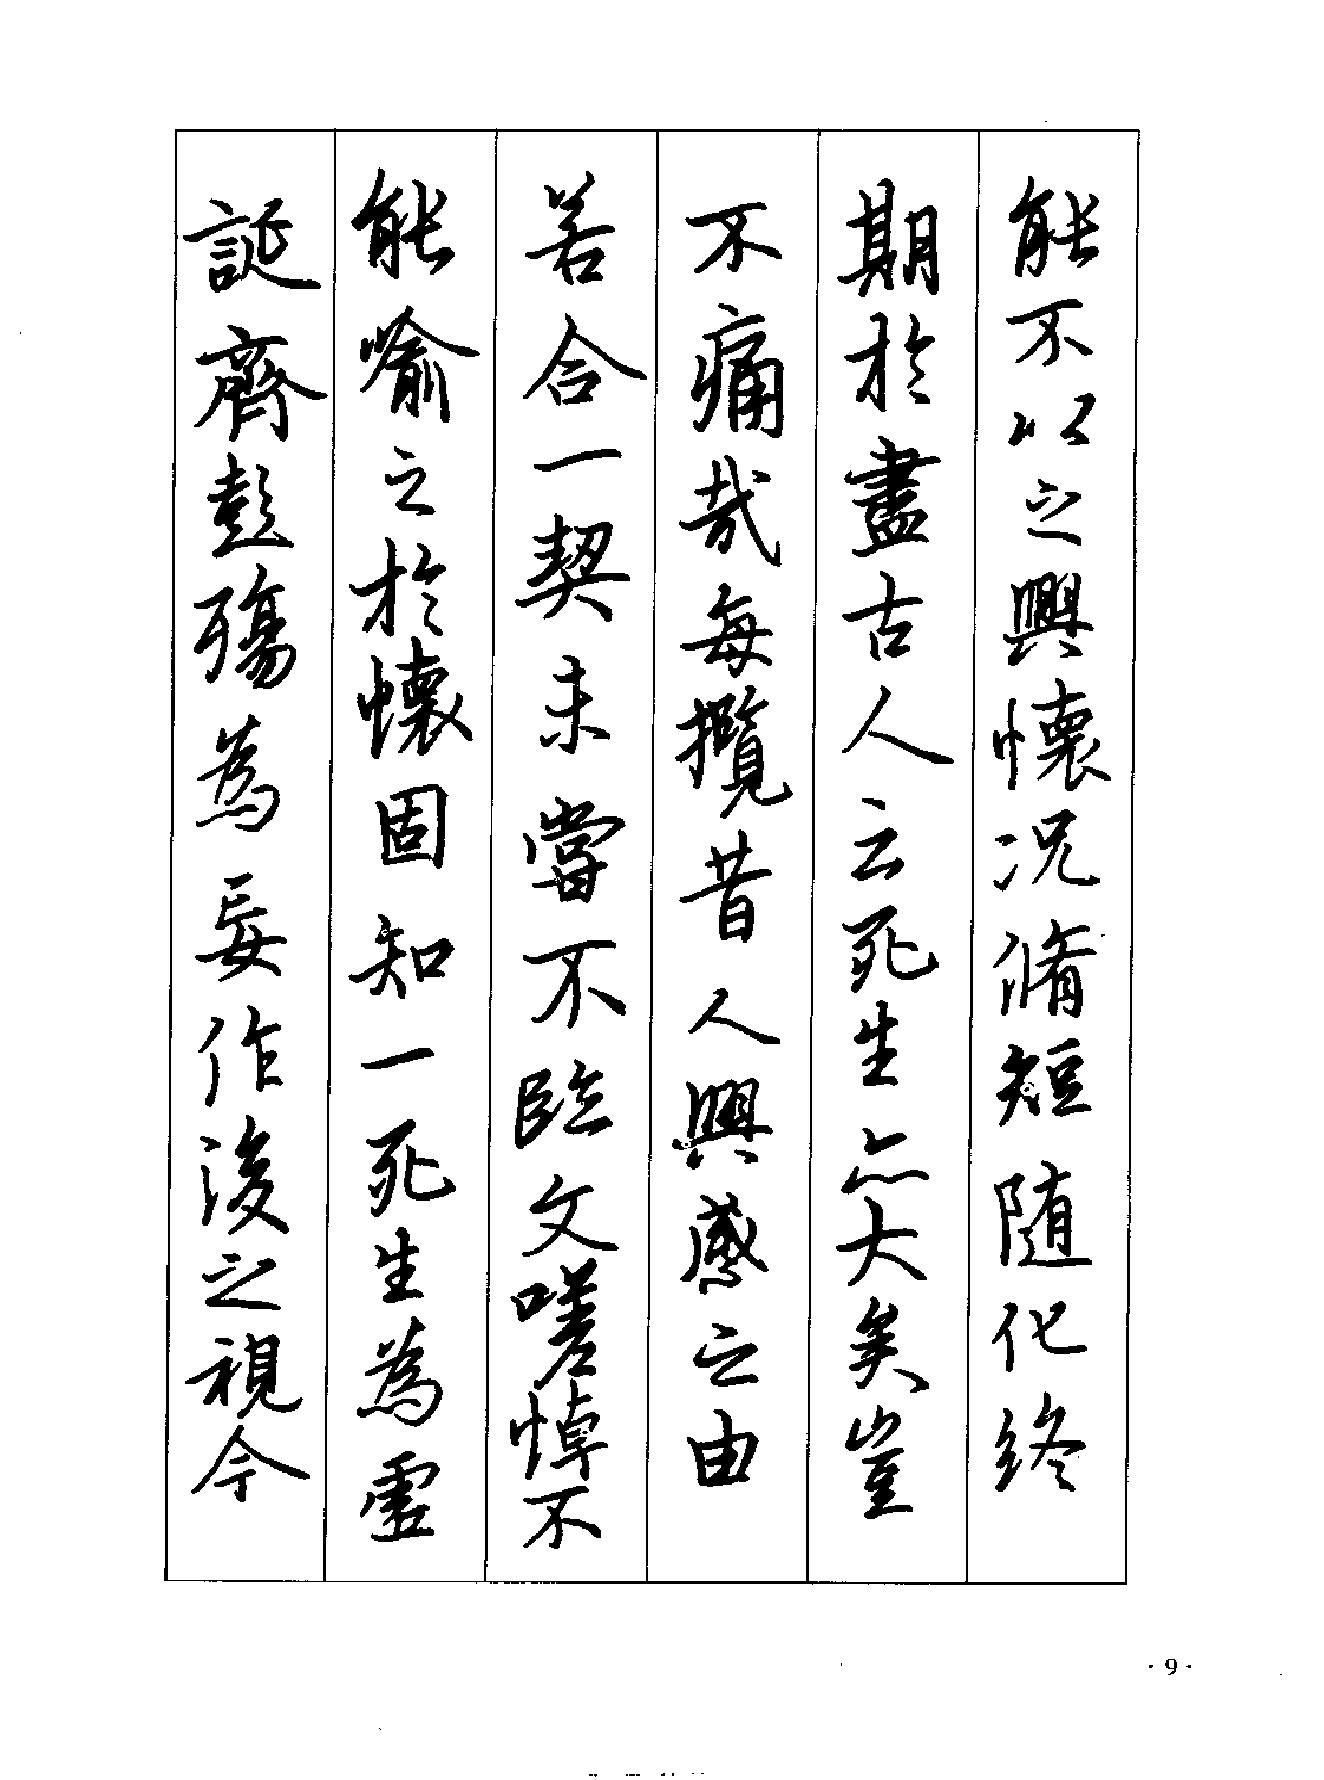 能不以之興懷况脩短隨化終
期於盡古人云死生亦大矣豈
不痛哉每攬昔人興感之由
若合一契未嘗不臨文嗟悼不
能喻之於懷固知一死生為虛
誕齊彭殤為妄作後之視今
· 9 ·